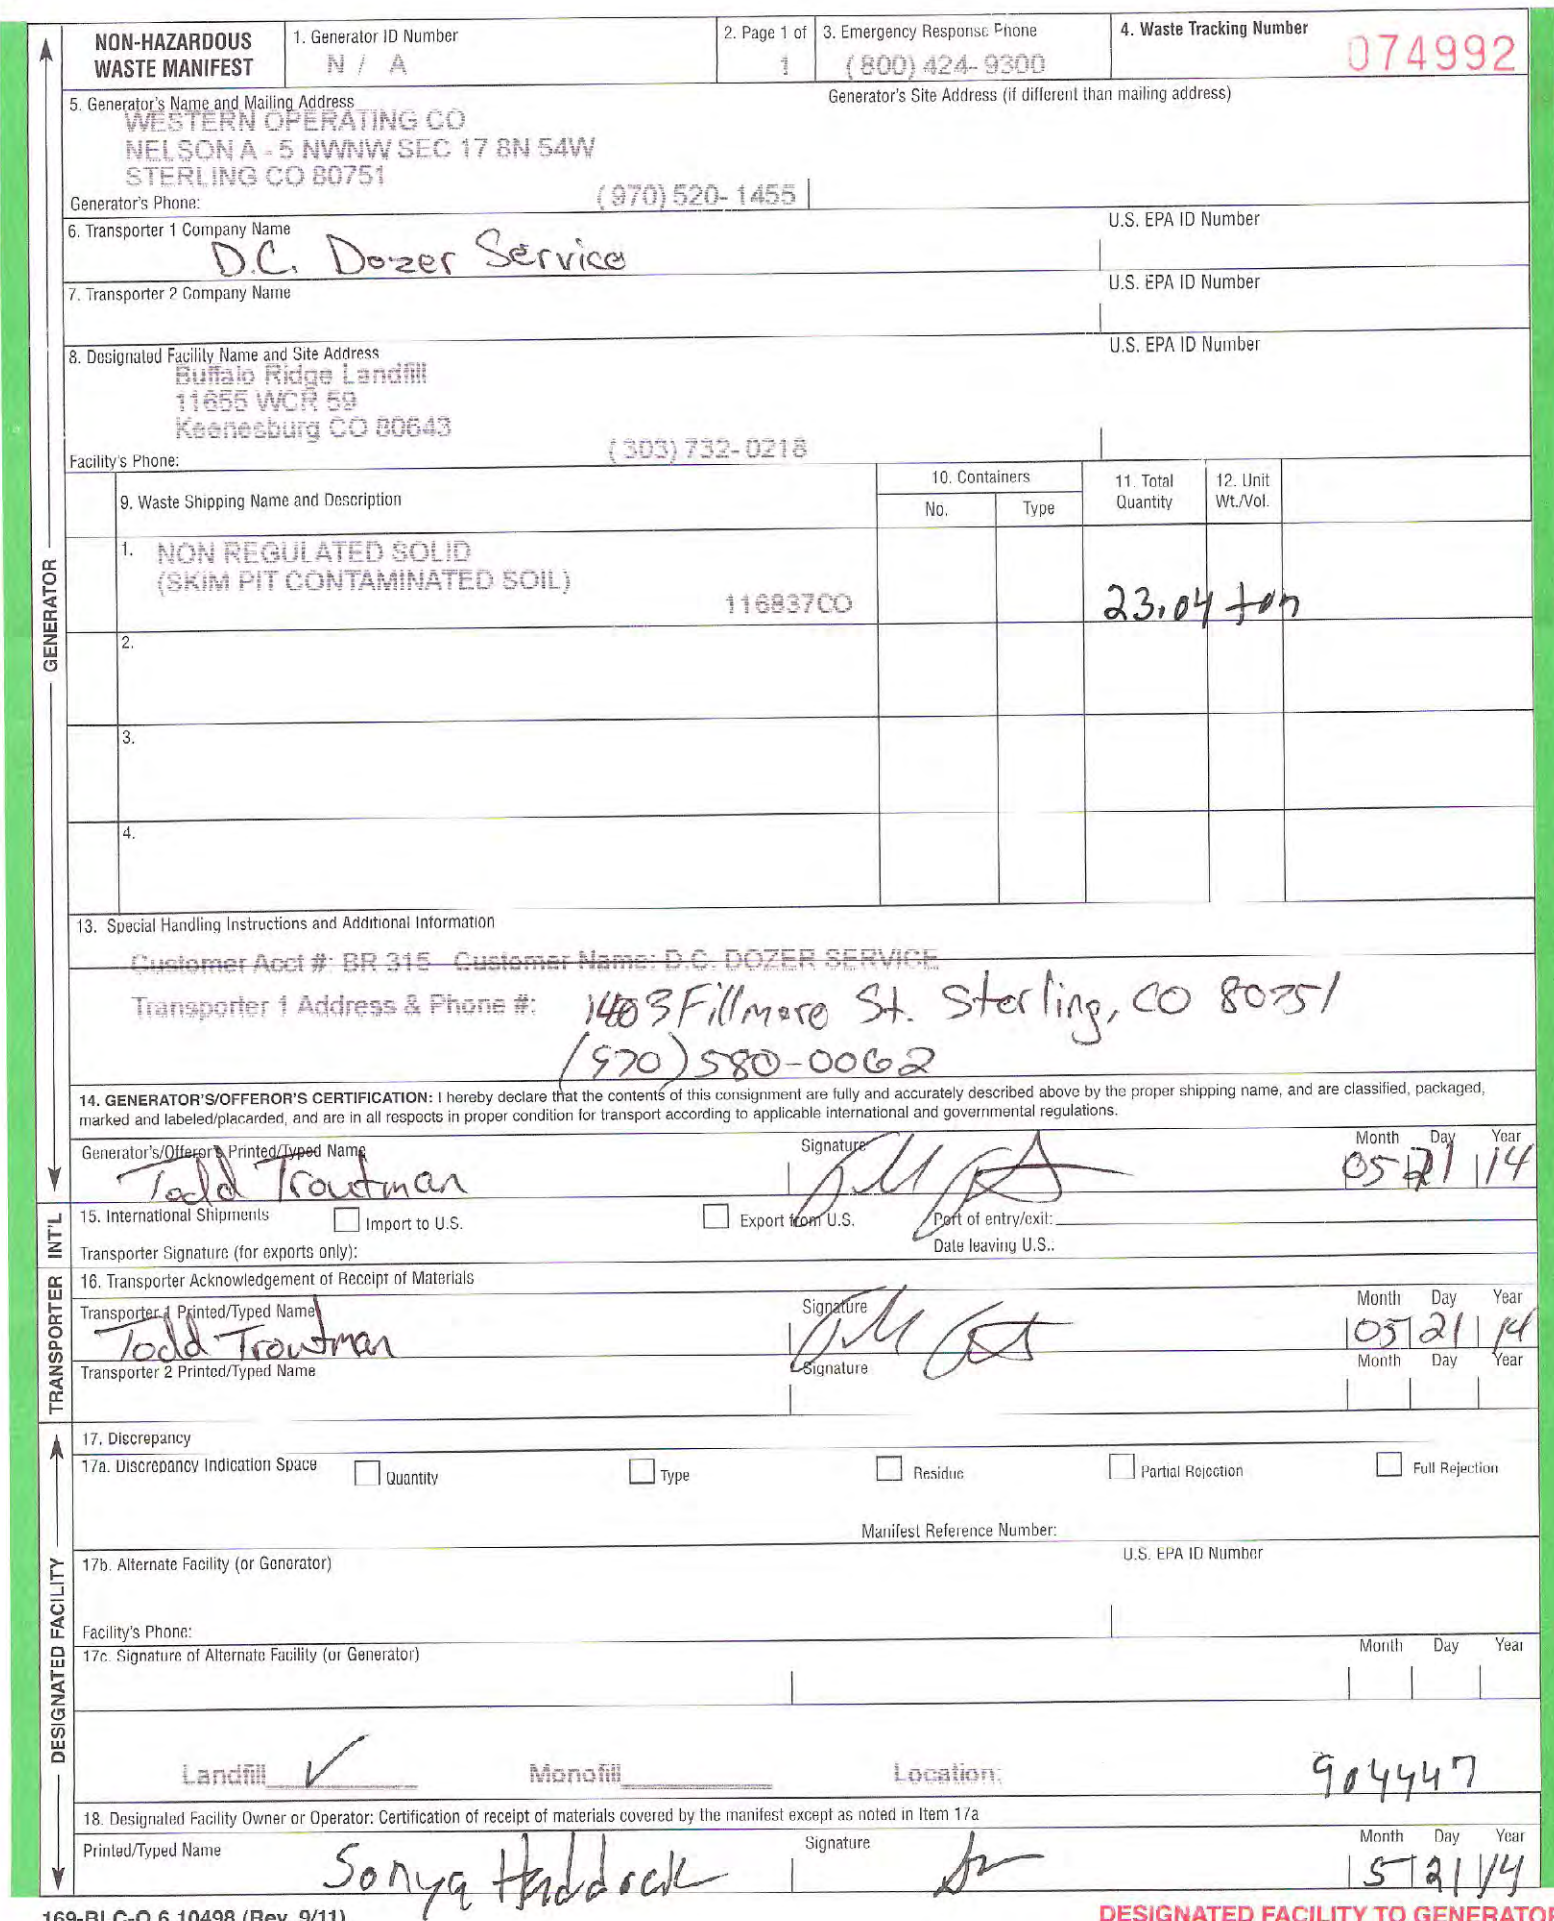 NON-HAZARDOUS WASTE MANIFEST
1. Generator ID Number
N / A
2. Page 1 of
1
3. Emergency Response Phone
(800) 424-9300
4. Waste Tracking Number
074992
5. Generator's Name and Mailing Address
Generator's Site Address (if different than mailing address)
WESTERN OPERATING CO
NELSON A - 5 NWNW SEC 17 8N 54W
STERLING CO 80751
Generator's Phone:
(970) 520-1455
6. Transporter 1 Company Name
U.S. EPA ID Number
D.C. Dozer Service
7. Transporter 2 Company Name
U.S. EPA ID Number
8. Designated Facility Name and Site Address
U.S. EPA ID Number
Buffalo Ridge Landfill
11655 WCR 59
Keenesburg CO 80643
Facility's Phone:
(303) 732-0218
9. Waste Shipping Name and Description
10. Containers
No.
Type
11. Total Quantity
12. Unit Wt./Vol.
1. NON REGULATED SOLID
(SKIM PIT CONTAMINATED SOIL)
116837CO
23.04 ton
2.
3.
4.
13. Special Handling Instructions and Additional Information
Customer Acct #: BR 315 Customer Name: D.C. DOZER SERVICE
Transporter 1 Address & Phone #: 1403 Fillmore St. Sterling, CO 80751
(970) 580-0062
14. GENERATOR'S/OFFEROR'S CERTIFICATION: I hereby declare that the contents of this consignment are fully and accurately described above by the proper shipping name, and are classified, packaged,
marked and labeled/placarded, and are in all respects in proper condition for transport according to applicable international and governmental regulations.
Generator's/Offeror's Printed/Typed Name
Signature
Month Day Year
Todd Troutman
05 21 14
15. International Shipments
Import to U.S.
Export from U.S.
Port of entry/exit:
Transporter Signature (for exports only):
Date leaving U.S.:
16. Transporter Acknowledgement of Receipt of Materials
Transporter 1 Printed/Typed Name
Signature
Month Day Year
Todd Troutman
05 21 14
Transporter 2 Printed/Typed Name
Signature
Month Day Year
17. Discrepancy
17a. Discrepancy Indication Space
Quantity
Type
Residue
Partial Rejection
Full Rejection
Manifest Reference Number:
17b. Alternate Facility (or Generator)
U.S. EPA ID Number
Facility's Phone:
17c. Signature of Alternate Facility (or Generator)
Month Day Year
Landfill ✓
Monofill
Location:
904447
18. Designated Facility Owner or Operator: Certification of receipt of materials covered by the manifest except as noted in Item 17a
Printed/Typed Name
Signature
Month Day Year
Sonya Haddock
5 21 14
169-BLC-O 6 10498 (Rev. 9/11)
DESIGNATED FACILITY TO GENERATOR
GENERATOR
INT'L
TRANSPORTER
DESIGNATED FACILITY